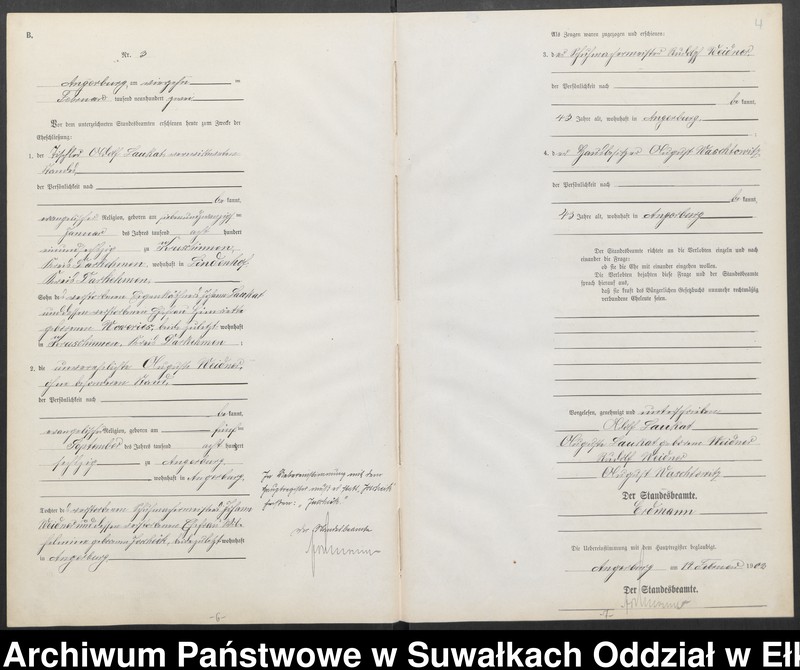 B.
Nr. 3
Angerburg, am vierzehn
Februar tausend neunhundert zwei
Vor dem unterzeichneten Standesbeamten erschienen heute zum Zwecke der
Eheschließung:
1. der Tischler Adolf Laukat
der Persönlichkeit nach
be kannt,
evangelischer Religion, geboren am siebenundzwanzig=
Januar des Jahres tausend acht hundert
zu
Kreis Darkehmen, wohnhaft in Lindenhof,
Kreis Darkehmen,
Sohn des verstorbenen Eigenkäthners Johann Laukat
und dessen verstorbenen Ehefrau Henriette
geborenen beide zuletzt wohnhaft
in Kreis Darkehmen;
2. die unverehelichte Auguste Weidner,
ohne besonderen Stand,
der Persönlichkeit nach
be kannt,
evangelischer Religion, geboren am fünf=
September des Jahres tausend acht hundert
sechzig zu Angerburg
wohnhaft in Angerburg,
Tochter des verstorbenen Schuhmachermeisters Johann
Weidner und dessen verstorbenen Ehefrau Wil=
helmine geborenen beide zuletzt wohnhaft
in Angerburg.
Zur Uebereinstimmung mit dem
Hauptregister muß es statt
heißen:
Der Standesbeamte
-6-
4
Als Zeugen waren zugezogen und erschienen:
3. der Schuhmachermeister Rudolf Weidner
der Persönlichkeit nach
be kannt,
43 Jahre alt, wohnhaft in Angerburg
4. der Hausbesitzer August Waschkowitz
der Persönlichkeit nach
be kannt,
43 Jahre alt, wohnhaft in Angerburg
Der Standesbeamte richtete an die Verlobten einzeln und nach
einander die Frage:
ob sie die Ehe mit einander eingehen wollen.
Die Verlobten bejahten diese Frage und der Standesbeamte
sprach hierauf aus,
daß sie kraft des Bürgerlichen Gesetzbuchs nunmehr rechtmäßig
verbundene Eheleute seien.
Vorgelesen, genehmigt und unterschrieben
Adolf Laukat
Auguste Laukat geborene Weidner
Rudolf Weidner
August Waschkowitz
Der Standesbeamte.
Erdmann
Die Uebereinstimmung mit dem Hauptregister beglaubigt.
Angerburg am 14. Februar 1902
Der Standesbeamte.
-7-
Archiwum Państwowe w Suwałkach Oddział w Eł